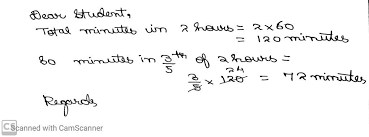 Dear Student,
Total minutes in 2 hours = 2x60
= 120 minutes
So minutes in 3/5 th of 2 hours =
3/5 x 120 24 = 72 minutes
Regards
CS Scanned with CamScanner